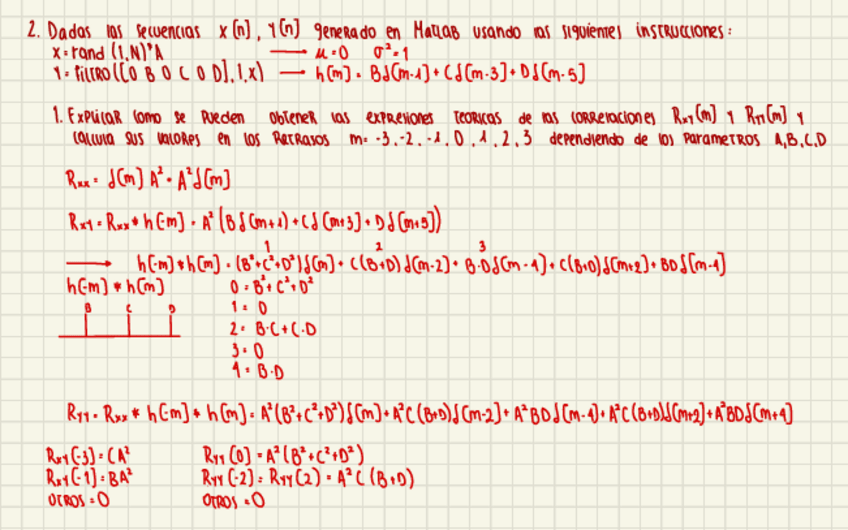 2. Dadas las secuencias x[n], Y[n] generado en Matlab usando las siguientes instrucciones:
x = rand (1,N)*A ⟶ μ=0 σ²=1
Y = filtro([0 B 0 C 0 D],1,x) ⟶ h[m] = Bδ[m-1] + Cδ[m-3] + Dδ[m-5]
1. Explicar como se pueden obtener las expresiones teoricas de las correlaciones Rxy[m] y Ryy[m] y
calcula sus valores en los retrasos m= -3,-2,-1,0,1,2,3 dependiendo de los parametros A,B,C,D
Rxx = δ[m] A² = A²δ[m]
Rxy = Rxx * h[-m] = A² (Bδ[m+1] + Cδ[m+3] + Dδ[m+5])
1 2 3
⟶ h[-m] * h[m] = (B²+C²+D²)δ[m] + C(B+D)δ[m-2] + B·Dδ[m-4] + C(B+D)δ[m+2] + BDδ[m-4]
h[-m] * h[m] 0 = B²+C²+D²
B C D 1 = 0
2 = B·C + C·D
3 = 0
4 = B·D
Ryy = Rxx * h[-m] * h[m] = A²(B²+C²+D²)δ[m] + A²C(B+D)δ[m-2] + A²BDδ[m-4] + A²C(B+D)δ[m+2] + A²BDδ[m+4]
Rxy[-3] = CA² Ryy[0] = A²(B²+C²+D²)
Rxy[-1] = BA² Ryy[-2] = Ryy[2] = A²C(B+D)
otros = 0 otros = 0